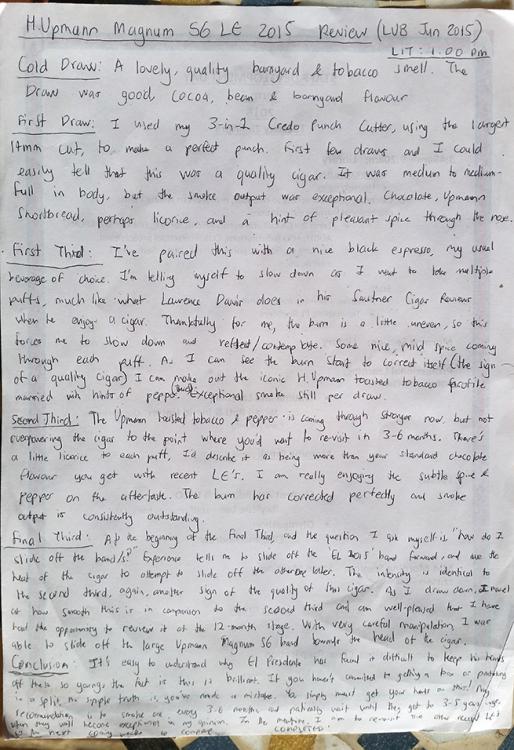 H.Upmann Magnum 56 LE 2015 Review (LUB Jun 2015)
LIT: 1.00 pm
Cold Draw: A lovely, quality barnyard & tobacco smell. The
Draw was good, cocoa, bean & barnyard flavour
First Draw: I used my 3-in-1 Credo Punch Cutter, using the largest
14mm cut, to make a perfect punch. First few draws and I could
easily tell that this was a quality cigar. It was medium to medium-
full in body, but the smoke output was exceptional. Chocolate, Upmann
Shortbread, perhaps licorice, and a hint of pleasant spice through the nose.
First Third: I've paired this with a nice black espresso, my usual
beverage of choice. I'm telling myself to slow down as I want to take multiple
puffs, much like what Lawrence Davis does in his Sautner Cigar Reviews
when he enjoys a cigar. Thankfully for me, the burn is a little uneven, so this
forces me to slow down and reflect/contemplate. Some nice, mild spice coming
through each puff. As I can see the burn start to correct itself (the sign
of a quality cigar) I can make out the iconic H.Upmann toasted tobacco profile
married with hints of pepper. Exceptional smoke still per draw.
Second Third: The Upmann toasted tobacco & pepper is coming through stronger now, but not
overpowering the cigar to the point where you'd want to re-visit in 3-6 months. There's
a little licorice to each puff, I'd describe it as being more than your standard chocolate
flavour you get with recent LE's. I am really enjoying the subtle spice &
pepper on the aftertaste. The burn has corrected perfectly and smoke
output is consistently outstanding.
Final Third: At the beginning of the Final Third, and the question I ask myself is "how do I
slide off the band/s?" Experience tells me to slide off the 'EL 2015' band forward, and use the
heat of the cigar to attempt to slide off the other one later. The intensity is identical to
the second third, again, another sign of the quality of this cigar. As I draw down, I marvel
at how smooth this is in comparison to the second third and am well-pleased that I have
had the opportunity to review it at the 12-month stage. With very careful manipulation, I was
able to slide off the large Upmann Magnum 56 band towards the head of the cigar.
Conclusion: It's easy to understand why El Presidente has found it difficult to keep his hands
off these so young. The fact is this is brilliant. If you haven't committed to getting a box or
in a split, the simple truth is, you've made a mistake. You simply must get your hands on this! My
recommendation is to smoke one every 3-6 months and patiently wait until they get to 3-5 years age,
when they will become exceptional in my opinion. In the meantime, I am to re-visit the other recent LE's
in the next coming weeks to compare. COMPLETED: